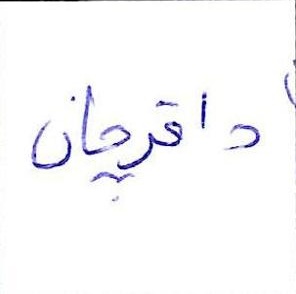 داقرچان